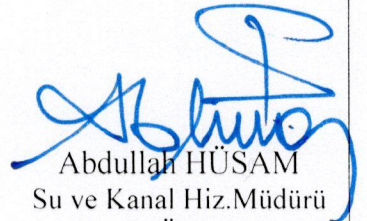 Abdullah HÜSAM
Su ve Kanal Hiz.Müdürü